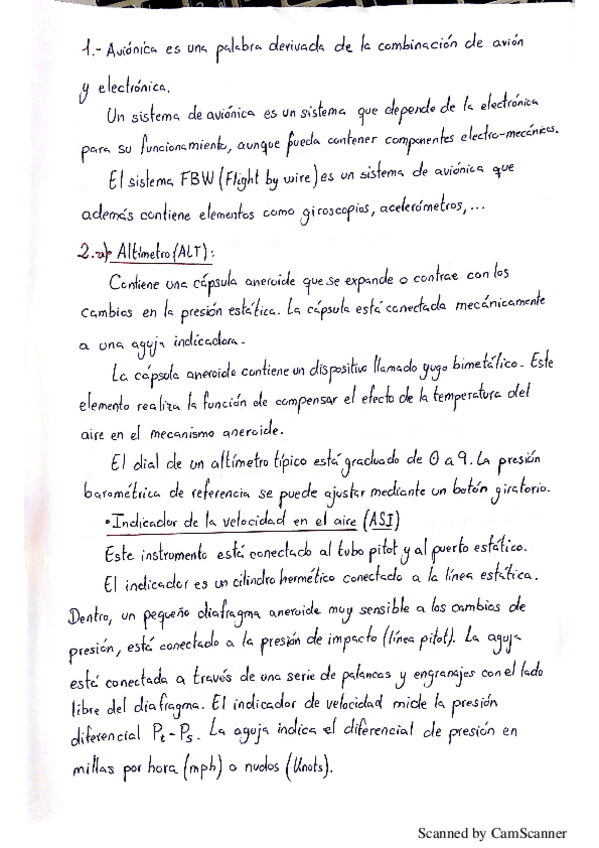 1.- Aviónica es una palabra derivada de la combinación de avión
y electrónica.
Un sistema de aviónica es un sistema que depende de la electrónica
para su funcionamiento, aunque pueda contener componentes electro-mecánicos.
El sistema FBW (Flight by wire) es un sistema de aviónica que
además contiene elementos como giroscopios, acelerómetros, ...
2.- Altímetro (ALT):
Contiene una cápsula aneroide que se expande o contrae con los
cambios en la presión estática. La cápsula está conectada mecánicamente
a una aguja indicadora.
La cápsula aneroide contiene un dispositivo llamado yugo bimetálico. Este
elemento realiza la función de compensar el efecto de la temperatura del
aire en el mecanismo aneroide.
El dial de un altímetro típico está graduado de 0 a 9. La presión
barométrica de referencia se puede ajustar mediante un botón giratorio.
• Indicador de la velocidad en el aire (ASI)
Este instrumento está conectado al tubo pitot y al puerto estático.
El indicador es un cilindro hermético conectado a la línea estática.
Dentro, un pequeño diafragma aneroide muy sensible a los cambios de
presión, está conectado a la presión de impacto (línea pitot). La aguja
está conectada a través de una serie de palancas y engranajes con el lado
libre del diafragma. El indicador de velocidad mide la presión
diferencial Pt - Ps. La aguja indica el diferencial de presión en
millas por hora (mph) o nudos (Knots).
Scanned by CamScanner